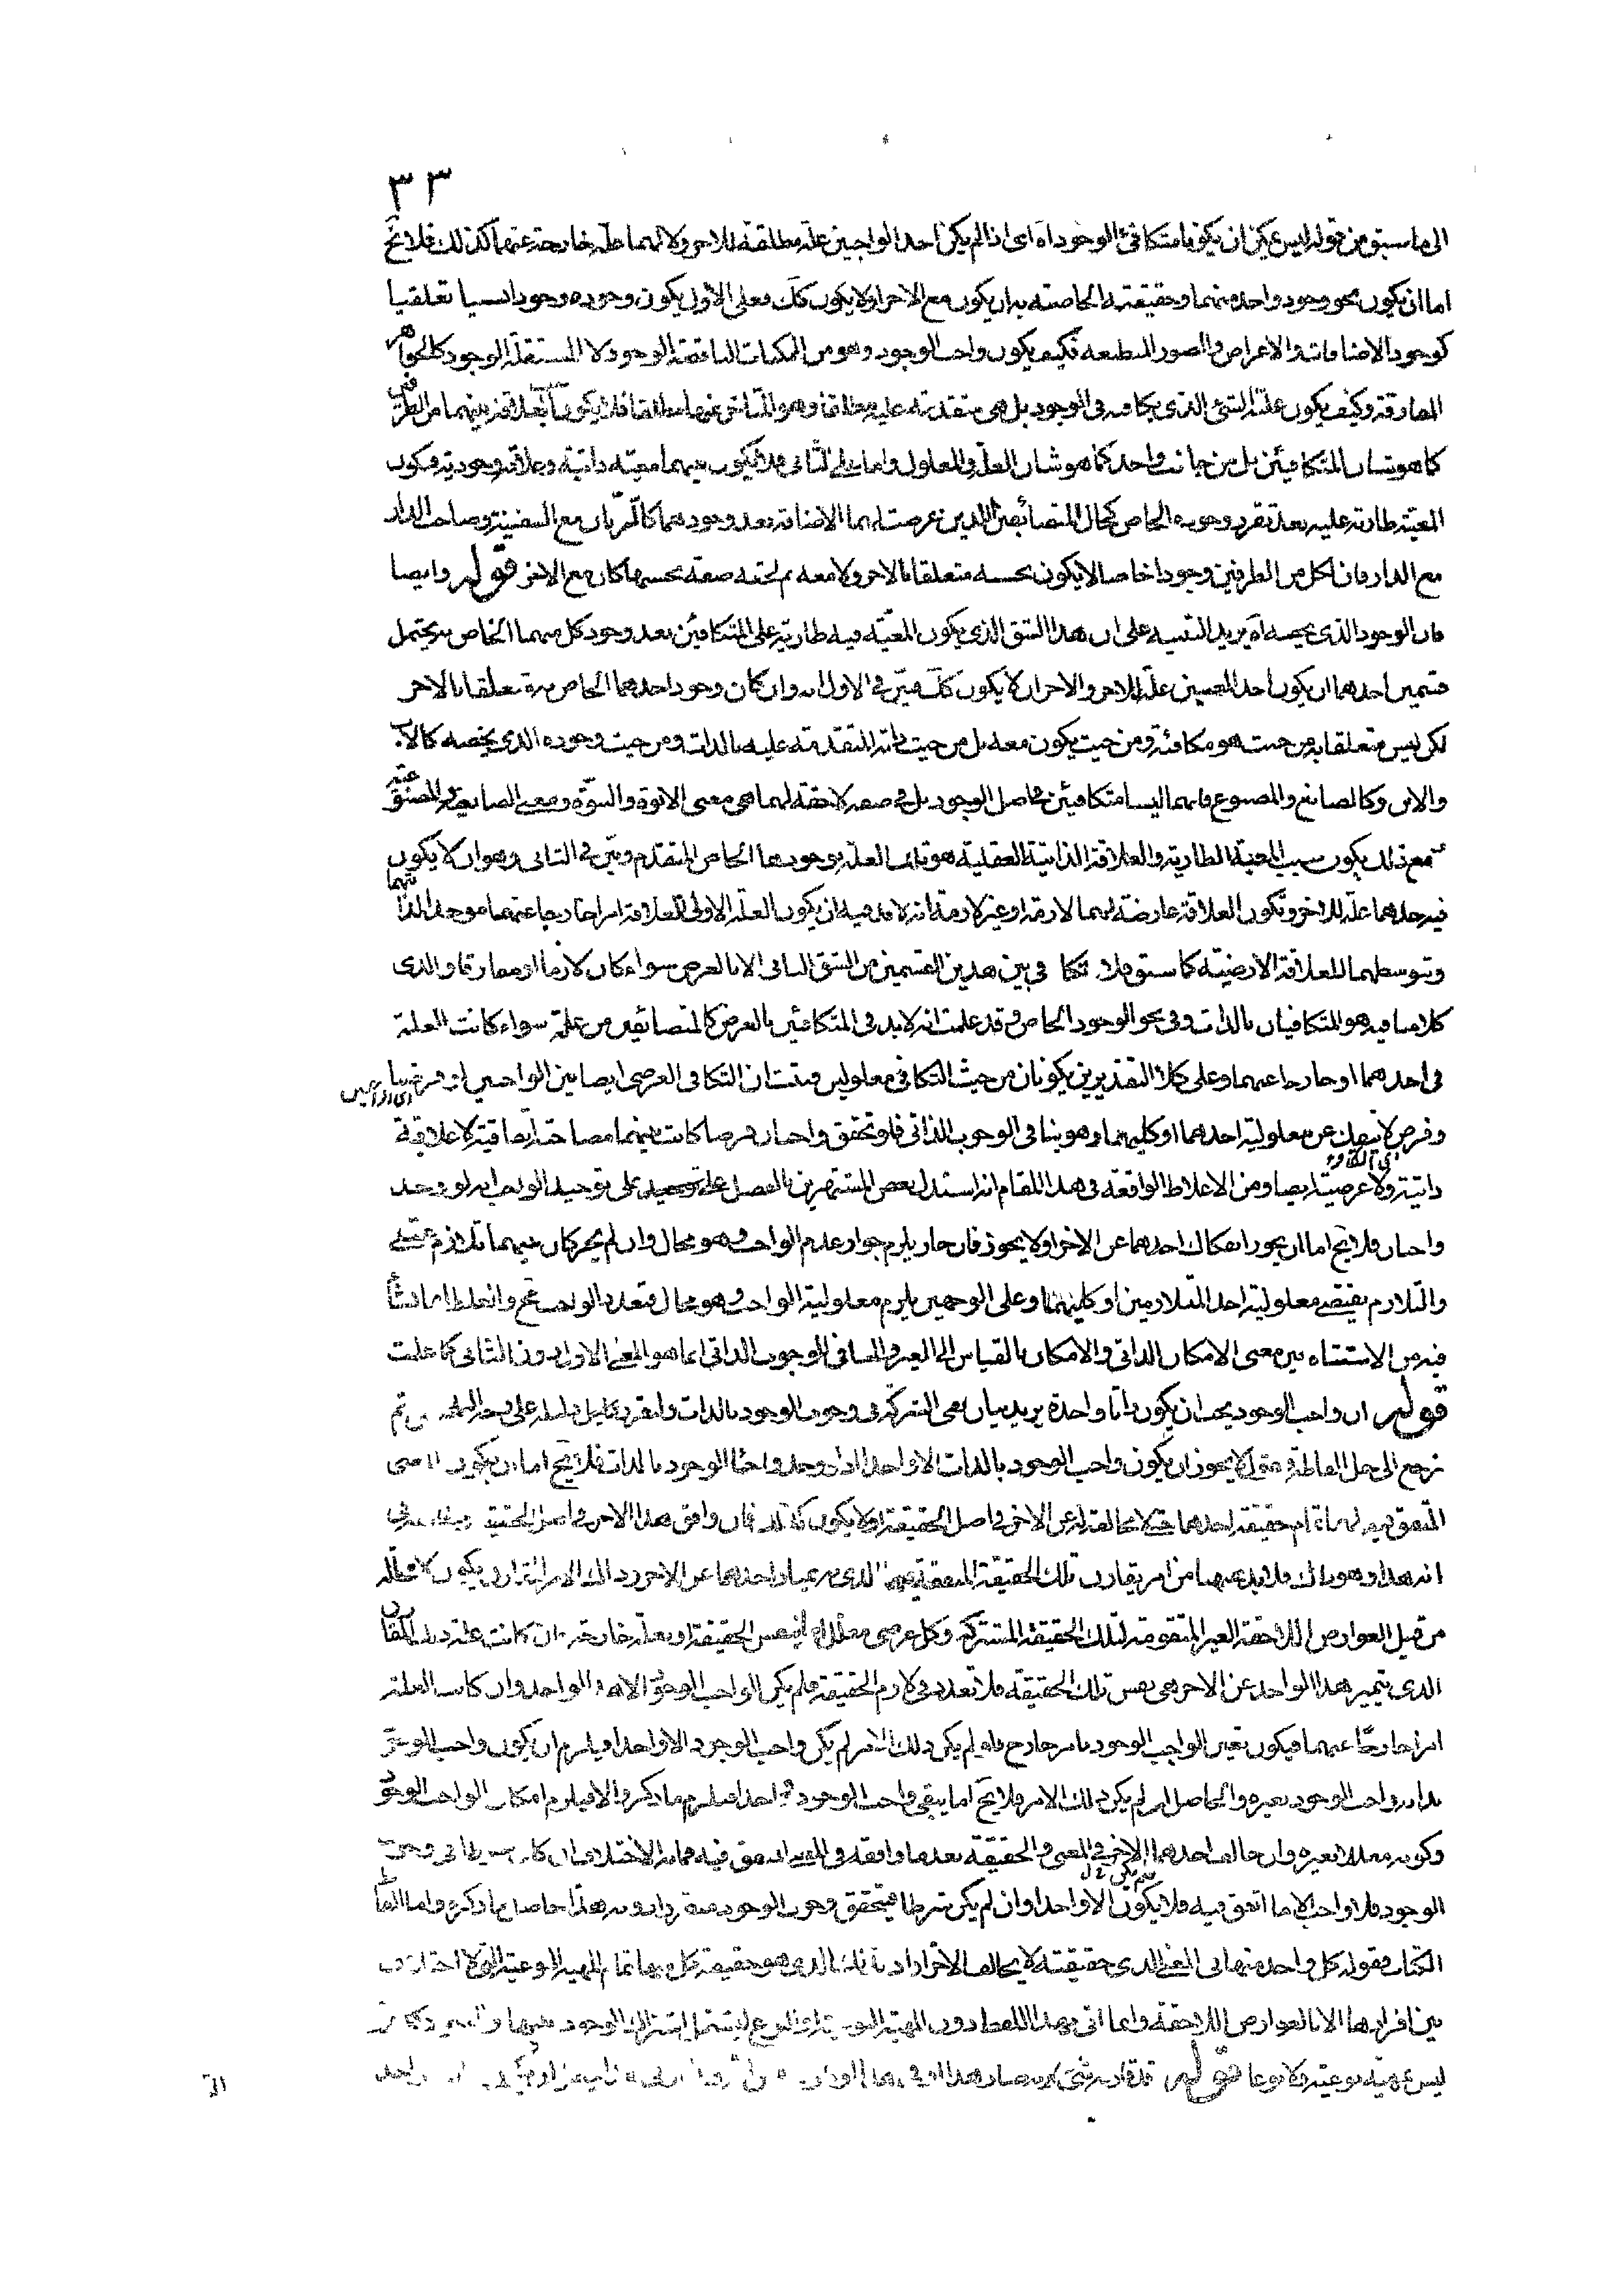 ٣٣
الى ما سبق من قوله ليس يمكن ان يكونا متكافئى الوجود اه اى اذا لم يكن احد الواجبين علة مطلقة للاخر ولا لهما علة خارجة عنهما كذلك فلا يخ
اما ان يكون نحو وجود واحد منهما وحقيقته الخاصته به ان يكون مع الاخر او لا يكون كك فعلى الاول يكون وجوده وجودا نسبيا تعلقيا
كوجود الاضافات والاعراض والصور المنطبعه فكيف يكون واجب الوجود وهو من الممكنات الناقصة الوجود لا المستقلة الوجود كالجواهر
المفارقة وكيف يكون علته الشئ الذى يكافيه فى الوجود بل هى متقدمة عليه مطلقا وهو المتاخر عنها مطلقا فلا يكون العلاقة بينهما من الطرفين
كما هو شان المتكافيئن بل من جانب واحد كما هو شان العلة والمعلول واما على الثانى فلا يكون بينهما معيته ذاتية وعلاقة وجودية فيكون
المعيّة طارية عليه بعد تقرر وجوده الخاص كحال المتضائفين اللذين عرضت لهما الاضافة بعد وجودهما كالربان مع السفينة وصاحب الدار
مع الدار فان لكل من الطرفين وجودا خاصا لا يكون بحسبه متعلقا بالاخر ولا معه ثم لحقه صفة بحسبها كان مع الاخر قوله وايضا
فان الوجود الذى يخصه اه يريد التنبيه على ان هذا الشق الذى يكون المعيّة فيه طارية على المتكافئن بعد وجود كل منهما الخاص به يحتمل
قسمين احدهما ان يكون احد المعيين علة للاخر والاخر ان لا يكون كك فبيّن فى الاول انه وان كان وجود احدهما الخاص به متعلقا بالاخر
لكن ليس متعلقا به من حيث هو مكافئه ومن حيث يكون معه بل من حيث ذاته المتقدمة عليه بالذات ومن حيث وجوده الذى يخصه كالاب
والابن وكالصانع والمصنوع فانهما ليسا متكافيئن فى اصل الوجود بل فى صفه لاحقة لهما هى معنى الابوة والبنوّة ومعنى الصانعية والمصنوعية
مع ذلك يكون سبب المعية الطارية والعلاقة الذاتية العقلية هو تلك العلة بوجودها الخاص المتقدم وبيّن فى الثانى وهو ان لا يكون
فيه احدهما علة للاخر وتكون العلاقة عارضة لهما لازمة او غير لازمة انه لا بد فيه ان يكون العلة الاولى للعلاقة امرا خارجا عنهما موجدا لذاتهما
وبتوسطهما للعلاقة العرضية كما سبق فلا تكافى بين هذين القسمين من الشق الثانى الا بالعرض سواء كان لازما او مفارقا والذى
كلامنا فيه هو المتكافيان بالذات وفى نحو الوجود الخاص وقد علمت انه لا بد فى المتكافئين بالعرض كالمتضائفين من علة سواء كانت العلة
فى احدهما او خارجا عنهما وعلى كلا التقديرين يكونان من حيث التكافى معلولين فثبت ان التكافى العرضى ايضا بين الواجبين
وفرض لا ينفك عن معلولية احدهما او كليهما وهو ينافى الوجوب الذاتى فلو تحقق واجبان فرضا كانت بينهما مصاحبة اتفاقية لا علاقة
ذاتية ولا عرضية ايضا ومن الاغلاط الواقعة فى هذا المقام انه استدل بعض المشتهرين بالفضل على توحيد الواجب بانه لو وجد
واجبان فلا يخ اما ان يجوز انفكاك احدهما عن الاخر او لا يجوز فان جاز يلزم جواز عدم الواجب وهو محال وان لم يجز كان بينهما تلازم عقلى
والتلازم يقتضى معلولية احد المتلازمين او كليهما وعلى الوجهين يلزم معلولية الواجب وهو محال فتعدد الواجب مح والغلط انما نشأ
فيه من الاشتباه بين معنى الامكان الذاتى والامكان بالقياس الى الغير والمنافى للوجوب الذاتى انما هو المعنى الاول دون الثانى كما علمت
قوله ان واجب الوجود يجب ان يكون ذاتا واحدة يريد بيان نفى الشركة فى وجوب الوجود بالذات
نرجع الى حل الفاظه فنقول لا يجوز ان يكون واجب الوجود بالذات الا واحدا اذ لو وجد واجبا الوجود بالذات فلا يخ اما ان يكون المعنى
المتفق فيه لهما تمام حقيقة احدهما حتى لا مخالفة له عن الاخر فى اصل الحقيقة او لا يكون كذلك فان وافق هذا الاخر فى اصل الحقيقة
انه هذا وهو ذاك فلا بد فيهما من امر يقارن تلك الحقيقة المتفقة فيها الذى به يمتاز احدهما عن الاخر وذلك الامر المقارن يكون لا محالة
من قبيل العوارض اللاحقة الغير المتقومة لتلك الحقيقة المشتركة وكل عرضى معلل اما بنفس الحقيقة او بعلة خارجة فان كانت علة ذلك المقارن
الذى يتميز هذا الواحد عن الاخر هى نفس تلك الحقيقة فلا تعدد فى لازم الحقيقة فلم يكن الواجب الوجود الا هذا الواحد وان كانت العلة
امرا خارجا عنهما فيكون تعين الواجب الوجود بامر خارج فلو لم يكن ذلك الامر لم يكن واجب الوجود الا واحدا فيلزم ان يكون واحب الوجود
بذاته واجب الوجود بغيره والحاصل ان لم يكن ذلك الامر فلا يخ اما يبقى واجب الوجود واحدا فيلزم ما ذكره والا فيلزم امكان الواجب الوجود
وكونه معللا بغيره وان خالف احدهما الاخر فى المعنى والحقيقة بعد ما وافقه فى المعنى المتفق فيه فما به الاختلاف ان كان شرطا فى وجوب
الوجود فلا واجب الا ما اتفق فيه فلا يكون الا واحدا وان لم يكن شرطا فيتحقق وجوب الوجود منه بدونه هذا حاصل ما ذكره واما الفاظ
الكتاب فقوله كل واحد منهما فى المعنى الذى حقيقته لا يخالف الاخر اراد بذلك الذى هو حقيقة كل منهما تمام المهية النوعية التى لا اختلاف
بين افرادها الا بالعوارض اللاحقة وانما اتى بهذا اللفظ دون المهية النوعية او النوع
ليس مهية نوعية ولا نوعا قوله